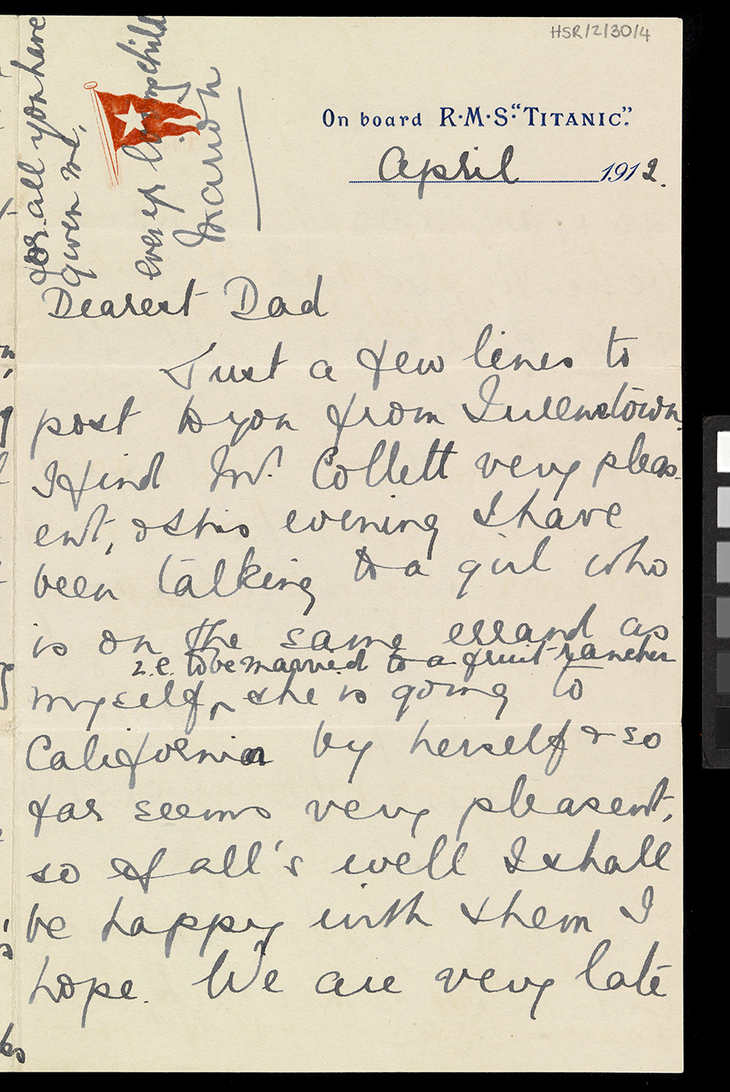 HSR/2/30/4
for all you have
given me,
ever yr loving child
Marion
On board R·M·S·"TITANIC".
April 1912.
Dearest Dad
Just a few lines to
post to you from Queenstown.
I find Mr. Collett very pleas-
ent, & this evening I have
been talking to a girl who
is on the same errand as
i.e. to be married to a fruit-rancher
myself, she is going to
California by herself & so
far seems very pleasent,
so if all's well I shall
be happy with them I
hope. We are very late